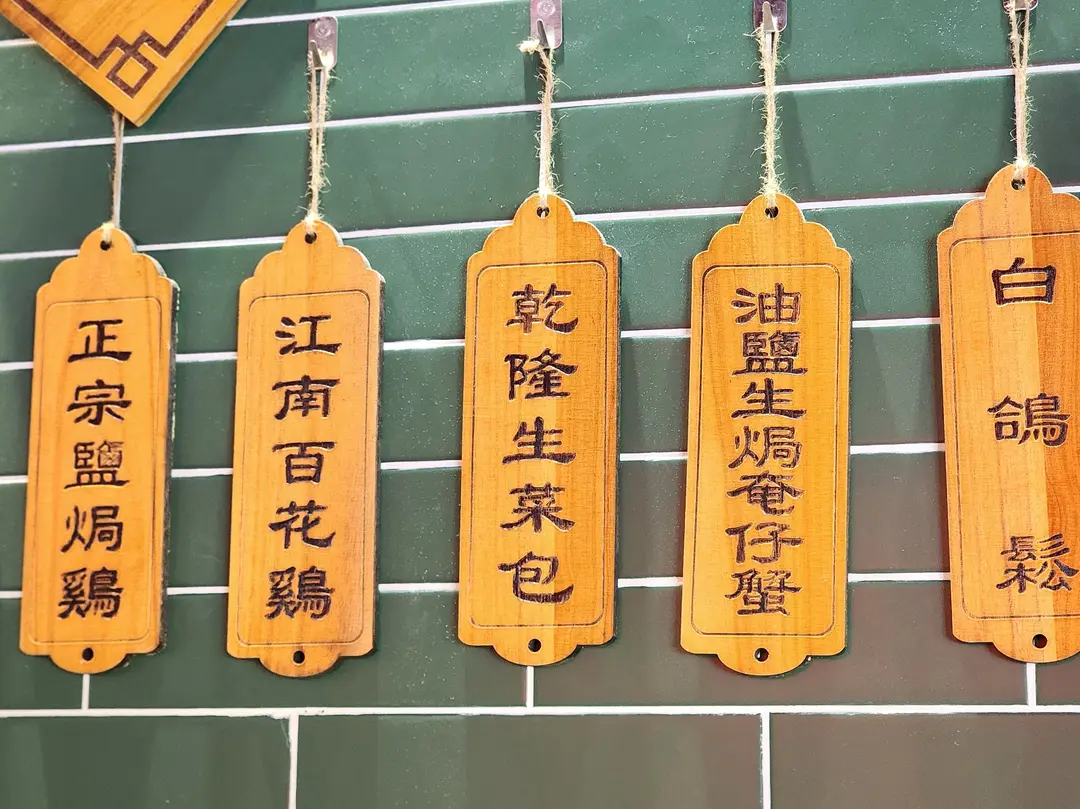 正宗鹽焗鷄
江南百花鷄
乾隆生菜包
油鹽生焗奄仔蟹
白鴿鬆